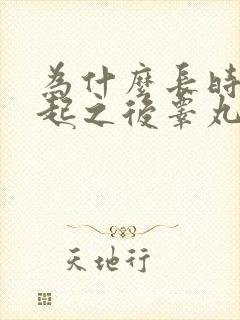 為什麼長時
起之後睪丸
天地行